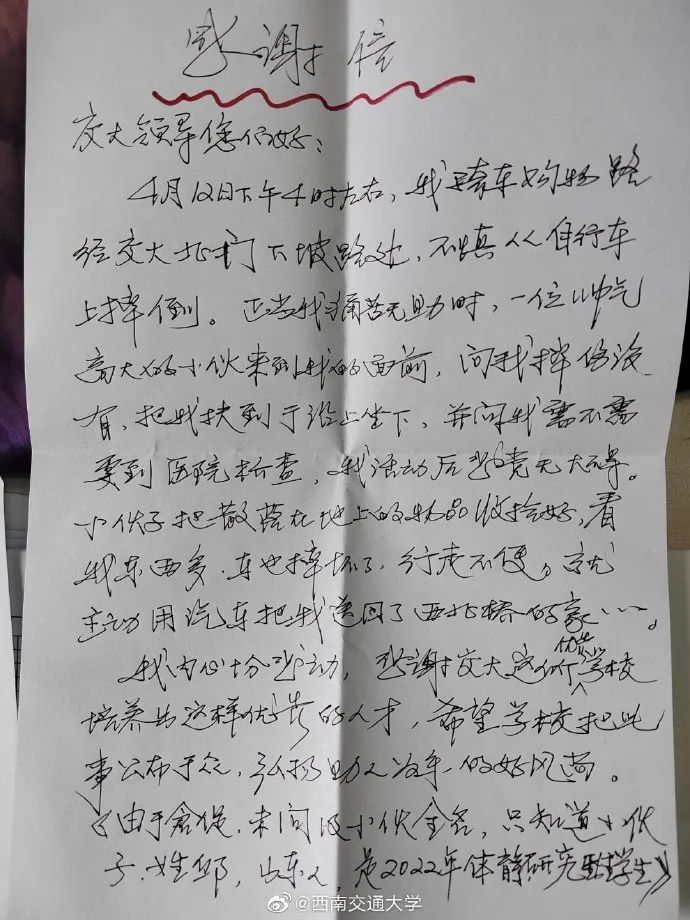 感谢信
交大领导您们好：
4月12日下午4时左右，我骑车购物路
经交大北门下坡路处，不慎从自行车
上摔倒。正当我痛苦无助时，一位帅气
高大的小伙来到我的面前，问我摔伤没
有，把我扶到于沿上坐下，并问我需不需
要到医院检查，我活动后感觉无大碍。
小伙子把散落在地上的物品收拾好，看
我东西多，车也摔坏了，行走不便。就
主动用汽车把我送回了西北桥的家……。
我内心十分感动，感谢交大这所优秀学校
培养出这样优秀的人才，希望学校把此
事公布于众，弘扬助人为乐的好风尚。
由于仓促，未问及小伙全名，只知道小伙
子姓邱，山东人，是2022年体育研究型学生》
@西南交通大学